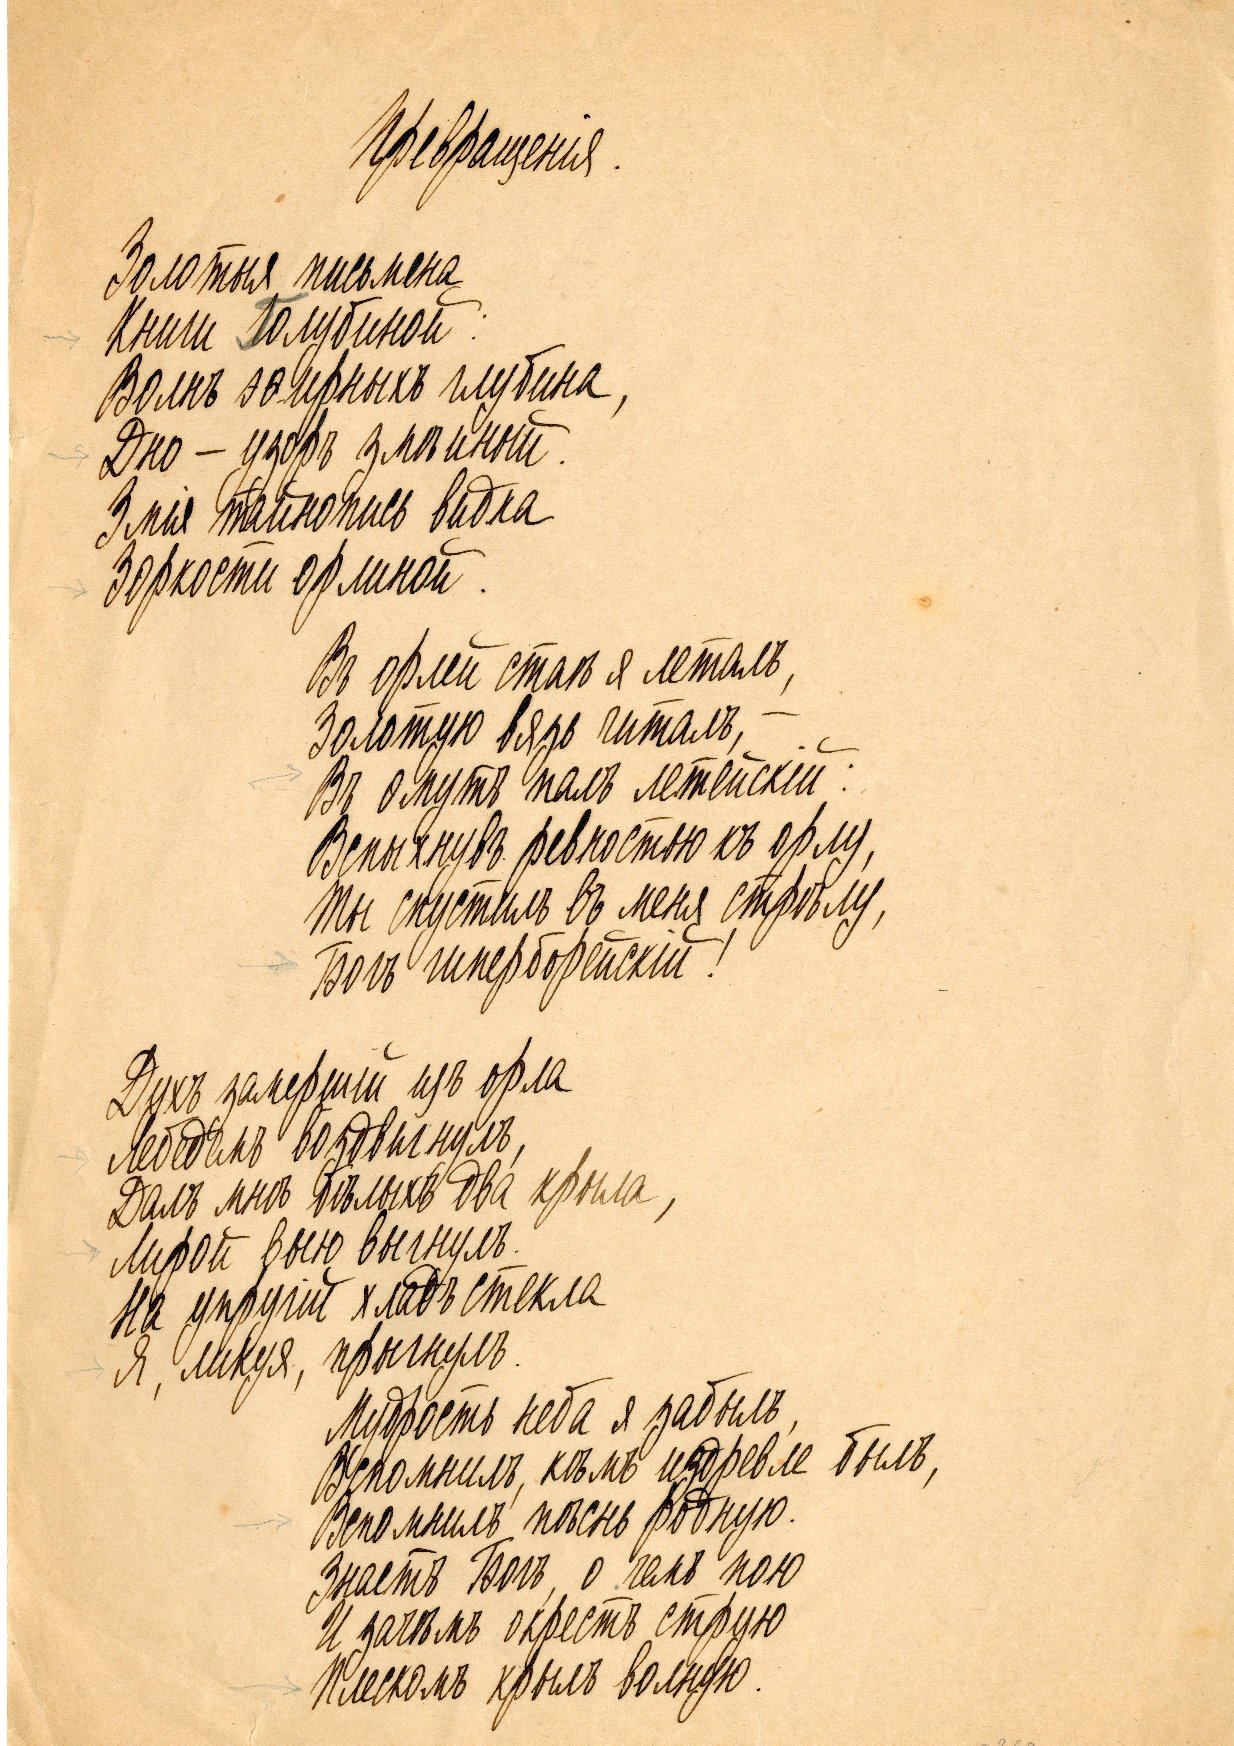 Превращенія.
Золотыя письмена
Книги Голубиной:
Волнъ эѳирныхъ глубина,
Дно — узоръ змѣиный.
Змія тайнопись видна
Зоркости орлиной.
Въ орлей стаѣ я леталъ,
Золотую вязь читалъ, —
Въ омутъ палъ летейскій:
Вспыхнувъ ревностью къ орлу,
Ты спустилъ въ меня стрѣлу,
Богъ гиперборейскій!
Духъ замершій изъ орла
Лебедемъ воздвигнулъ,
Далъ мнѣ бѣлыхъ два крыла,
Лирой выю выгнулъ.
На упругій хладъ стекла
Я, ликуя, прыгнулъ.
Мудрость неба я забылъ,
Вспомнилъ, кѣмъ издревле былъ,
Вспомнилъ пѣснь родную.
Знаетъ Богъ, о чемъ пою
И зачѣмъ окрестъ струю
Плескомъ крылъ волную.